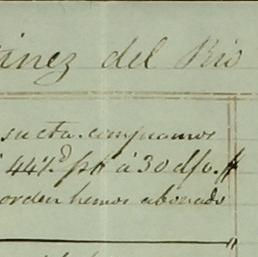 inez del Rio
su cta. compramos
44 7/8 d pr $ á 30 d/v. #
orden hemos abonado
"